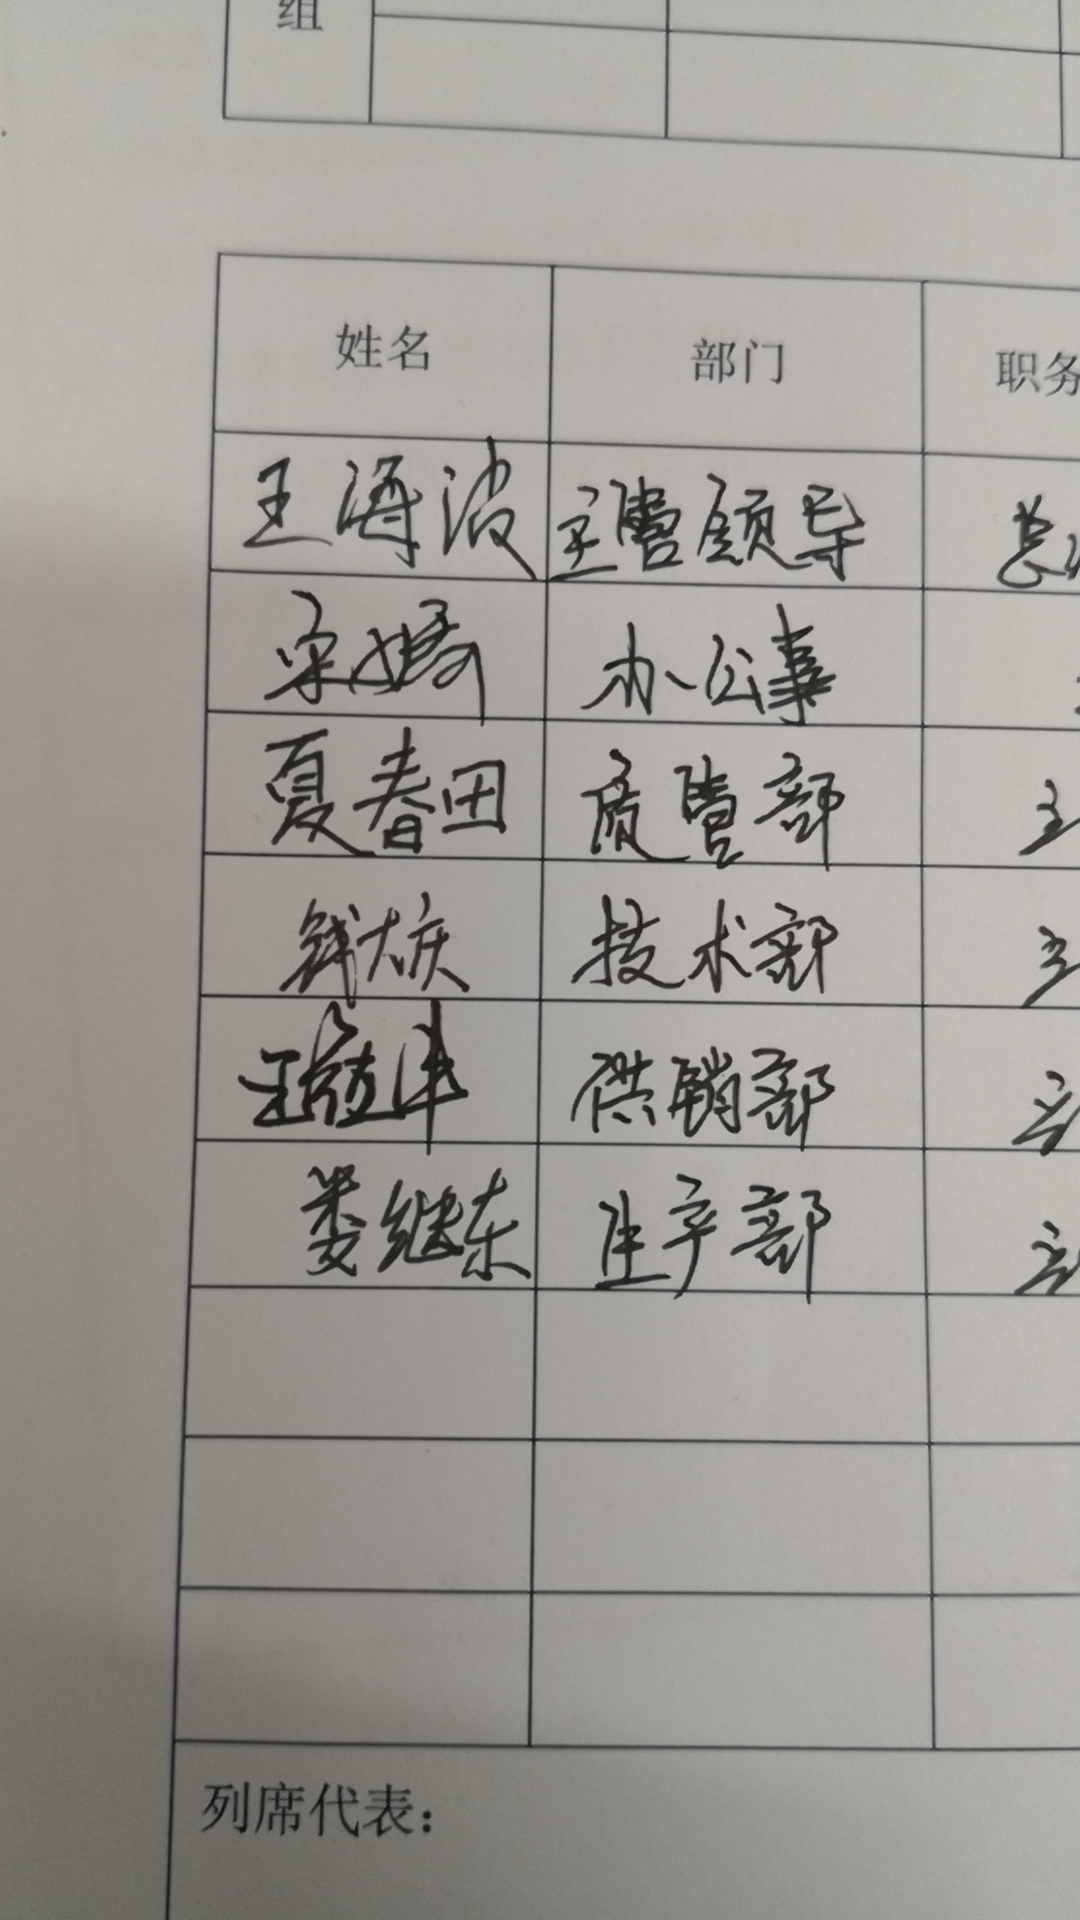 组
姓名 部门 职务
王海波 主管领导 总
宋嫣 办公事
夏春田 质管部 主
钱大庆 技术部 主
王 津 供销部 主
娄继东 生产部 主
列席代表：